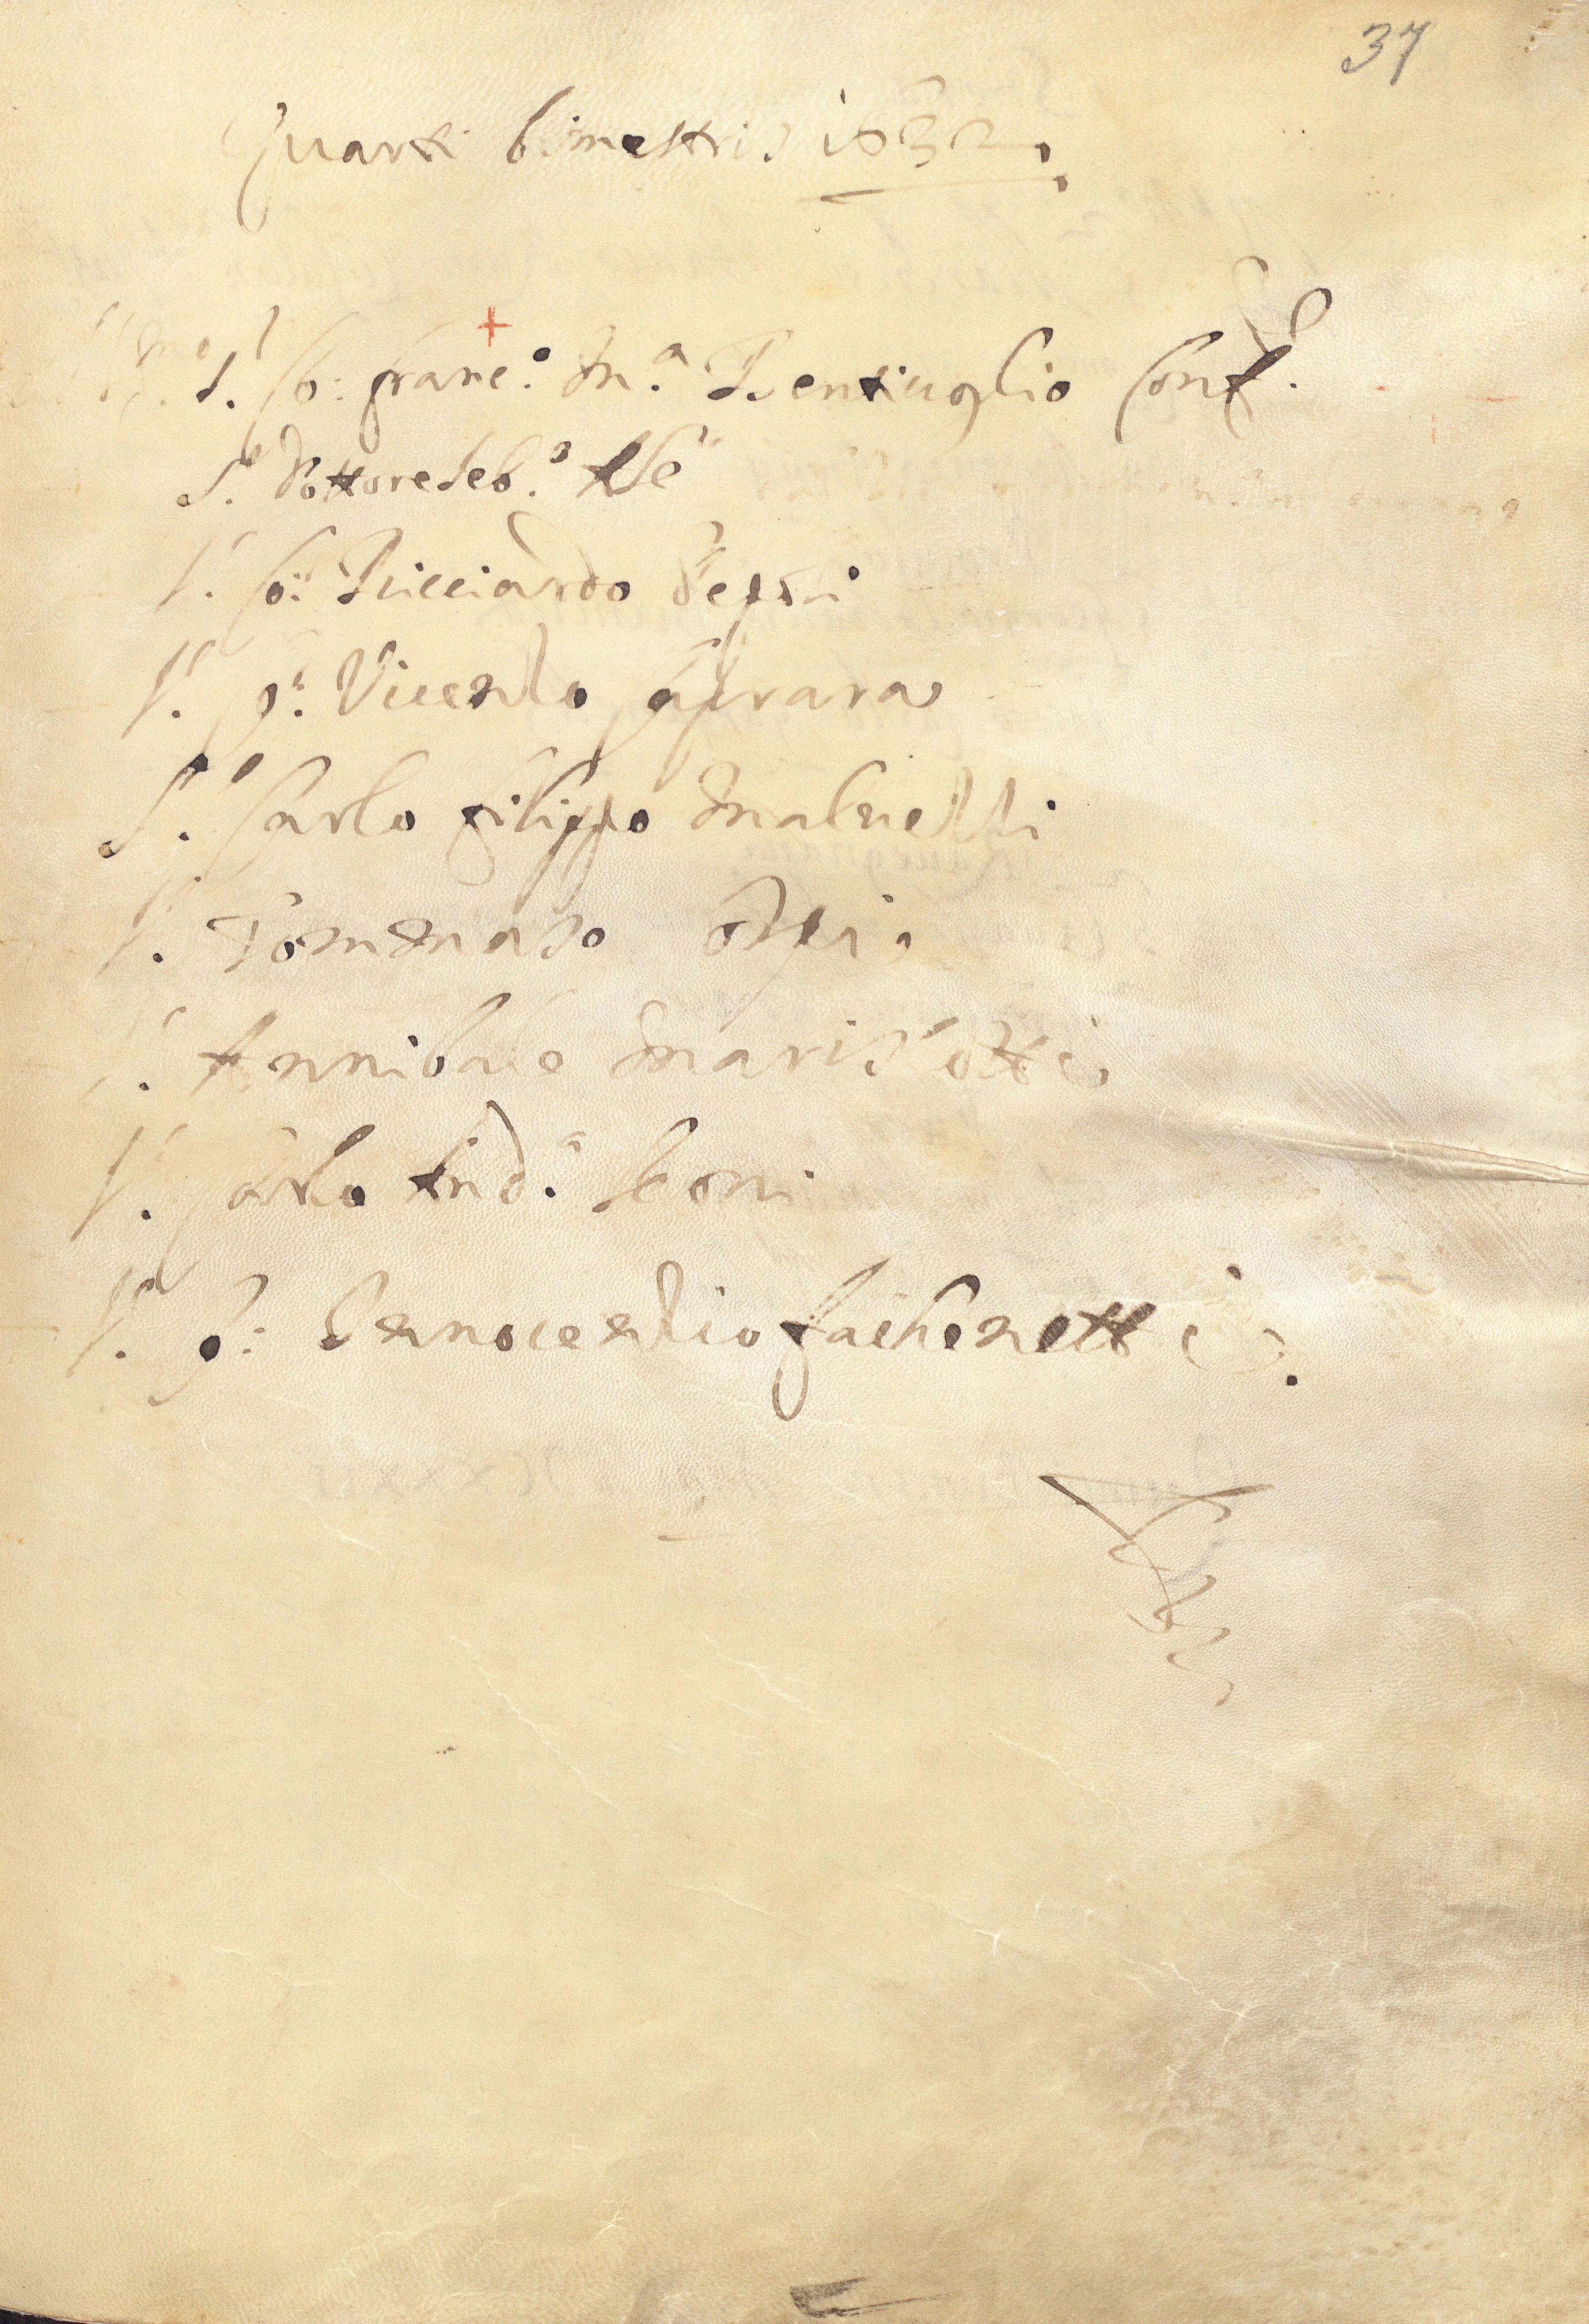 37
Quarti bimestris 1632.
Ill.mo S.r Co: Franc.o M.a Bentiuoglio Conf.re
S.r Dottore Seb.o
S.r Co: Ricciardo Pepoli
S.r Co: Vicenzo Caprara
S.r Carlo Filippo Maluezzi
S.r Tommaso Osti
S.r Annibale Mariscotti
S.r Carlo And.a Leoni
S.r Co: Innocenzio Fachenetti